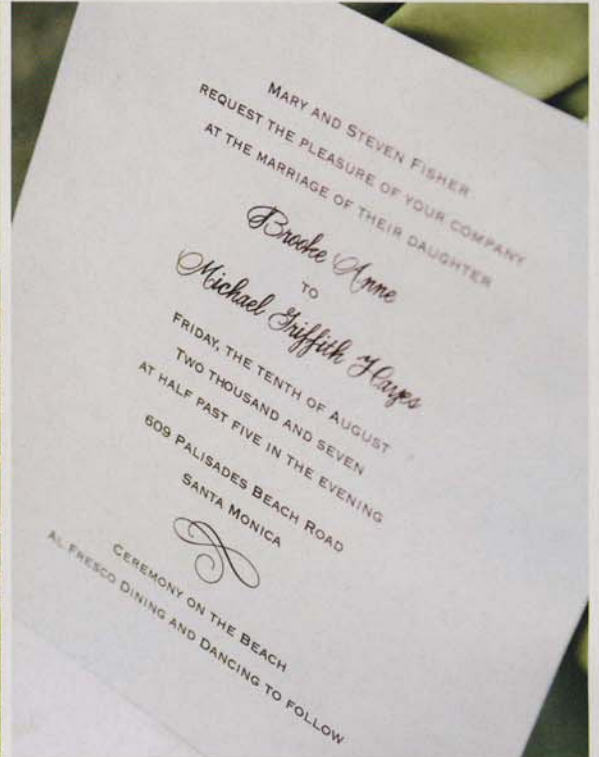 MARY AND STEVEN FISHER
REQUEST THE PLEASURE OF YOUR COMPANY
AT THE MARRIAGE OF THEIR DAUGHTER
Brooke Anne
TO
Michael Griffith Hayes
FRIDAY, THE TENTH OF AUGUST
TWO THOUSAND AND SEVEN
AT HALF PAST FIVE IN THE EVENING
609 PALISADES BEACH ROAD
SANTA MONICA
CEREMONY ON THE BEACH
AL FRESCO DINING AND DANCING TO FOLLOW